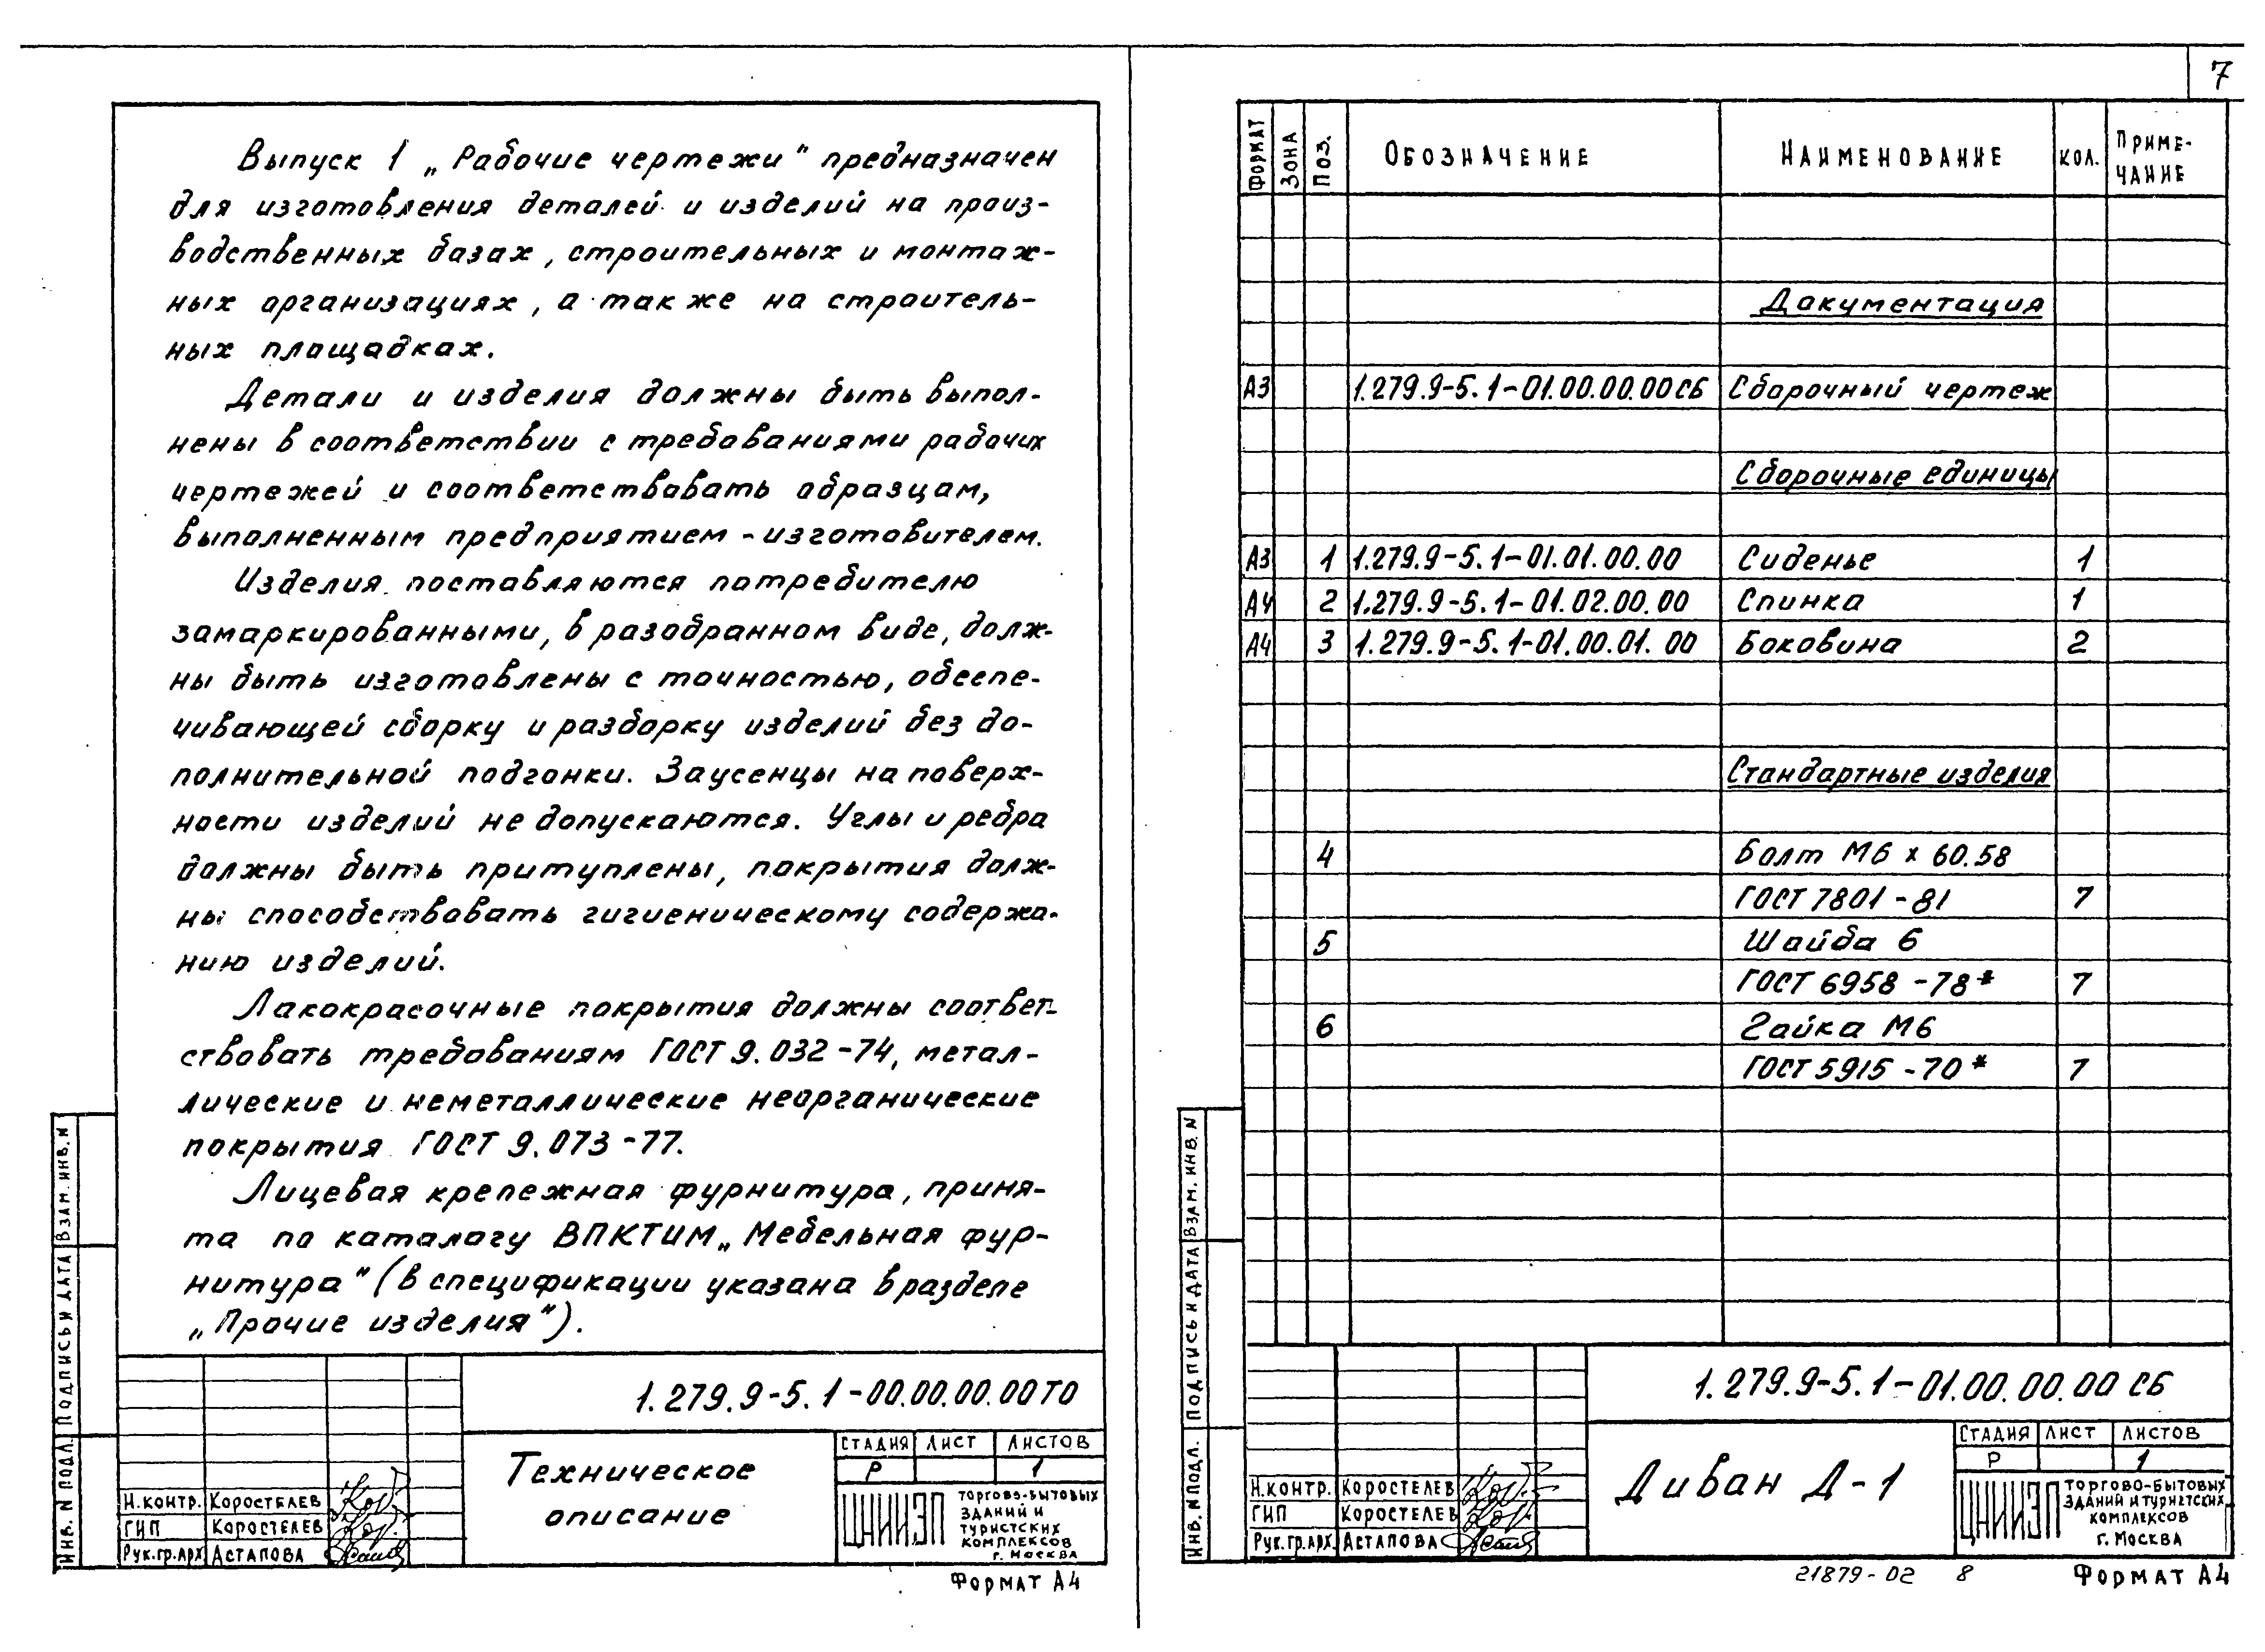 Выпуск 1 „Рабочие чертежи" предназначен
для изготовления деталей и изделий на произ-
водственных базах, строительных и монтаж-
ных организациях, а также на строитель-
ных площадках.
Детали и изделия должны быть выпол-
нены в соответствии с требованиями рабочих
чертежей и соответствовать образцам,
выполненным предприятием - изготовителем.
Изделия поставляются потребителю
замаркированными, в разобранном виде, долж-
ны быть изготовлены с точностью, обеспе-
чивающей сборку и разборку изделий без до-
полнительной подгонки. Заусенцы на поверх-
ности изделий не допускаются. Углы и ребра
должны быть притуплены, покрытия долж-
ны способствовать гигиеническому содержа-
нию изделий.
Лакокрасочные покрытия должны соответ-
ствовать требованиям ГОСТ 9.032-74, метал-
лические и неметаллические неорганические
покрытия ГОСТ 9.073-77.
Лицевая крепежная фурнитура, приня-
та по каталогу ВПКТИМ „Мебельная фур-
нитура" (в спецификации указана в разделе
„Прочие изделия").
1.279.9-5.1-00.00.00.00ТО
Техническое
описание
СТАДИЯ ЛИСТ ЛИСТОВ
Р 1
Н.КОНТР. КОРОСТЕЛЕВ
ГИП КОРОСТЕЛЕВ
РУК.ГР.АРХ АСТАПОВА
ЦНИИЭП ТОРГОВО-БЫТОВЫХ
ЗДАНИЙ И
ТУРИСТСКИХ
КОМПЛЕКСОВ
Г. МОСКВА
ИНВ. N ПОДЛ. ПОДПИСЬ И ДАТА ВЗАМ. ИНВ. N
ФОРМАТ А4
7
ФОРМАТ ЗОНА ПОЗ. ОБОЗНАЧЕНИЕ НАИМЕНОВАНИЕ КОЛ. ПРИМЕ-
ЧАНИЕ
Документация
А3 1.279.9-5.1-01.00.00.00СБ Сборочный чертеж
Сборочные единицы
А3 1 1.279.9-5.1-01.01.00.00 Сиденье 1
А4 2 1.279.9-5.1-01.02.00.00 Спинка 1
А4 3 1.279.9-5.1-01.00.01.00 Боковина 2
Стандартные изделия
4 Болт М6 х 60.58
ГОСТ 7801-81 7
5 Шайба 6
ГОСТ 6958-78* 7
6 Гайка М6
ГОСТ 5915-70* 7
1.279.9-5.1-01.00.00.00 СБ
Диван Д-1
СТАДИЯ ЛИСТ ЛИСТОВ
Р 1
Н.КОНТР. КОРОСТЕЛЕВ
ГИП КОРОСТЕЛЕВ
РУК.ГР.АРХ. АСТАПОВА
ЦНИИЭП ТОРГОВО-БЫТОВЫХ
ЗДАНИЙ И ТУРИСТСКИХ
КОМПЛЕКСОВ
Г. МОСКВА
ИНВ. N ПОДЛ. ПОДПИСЬ И ДАТА ВЗАМ. ИНВ. N
21879-02 8 ФОРМАТ А4